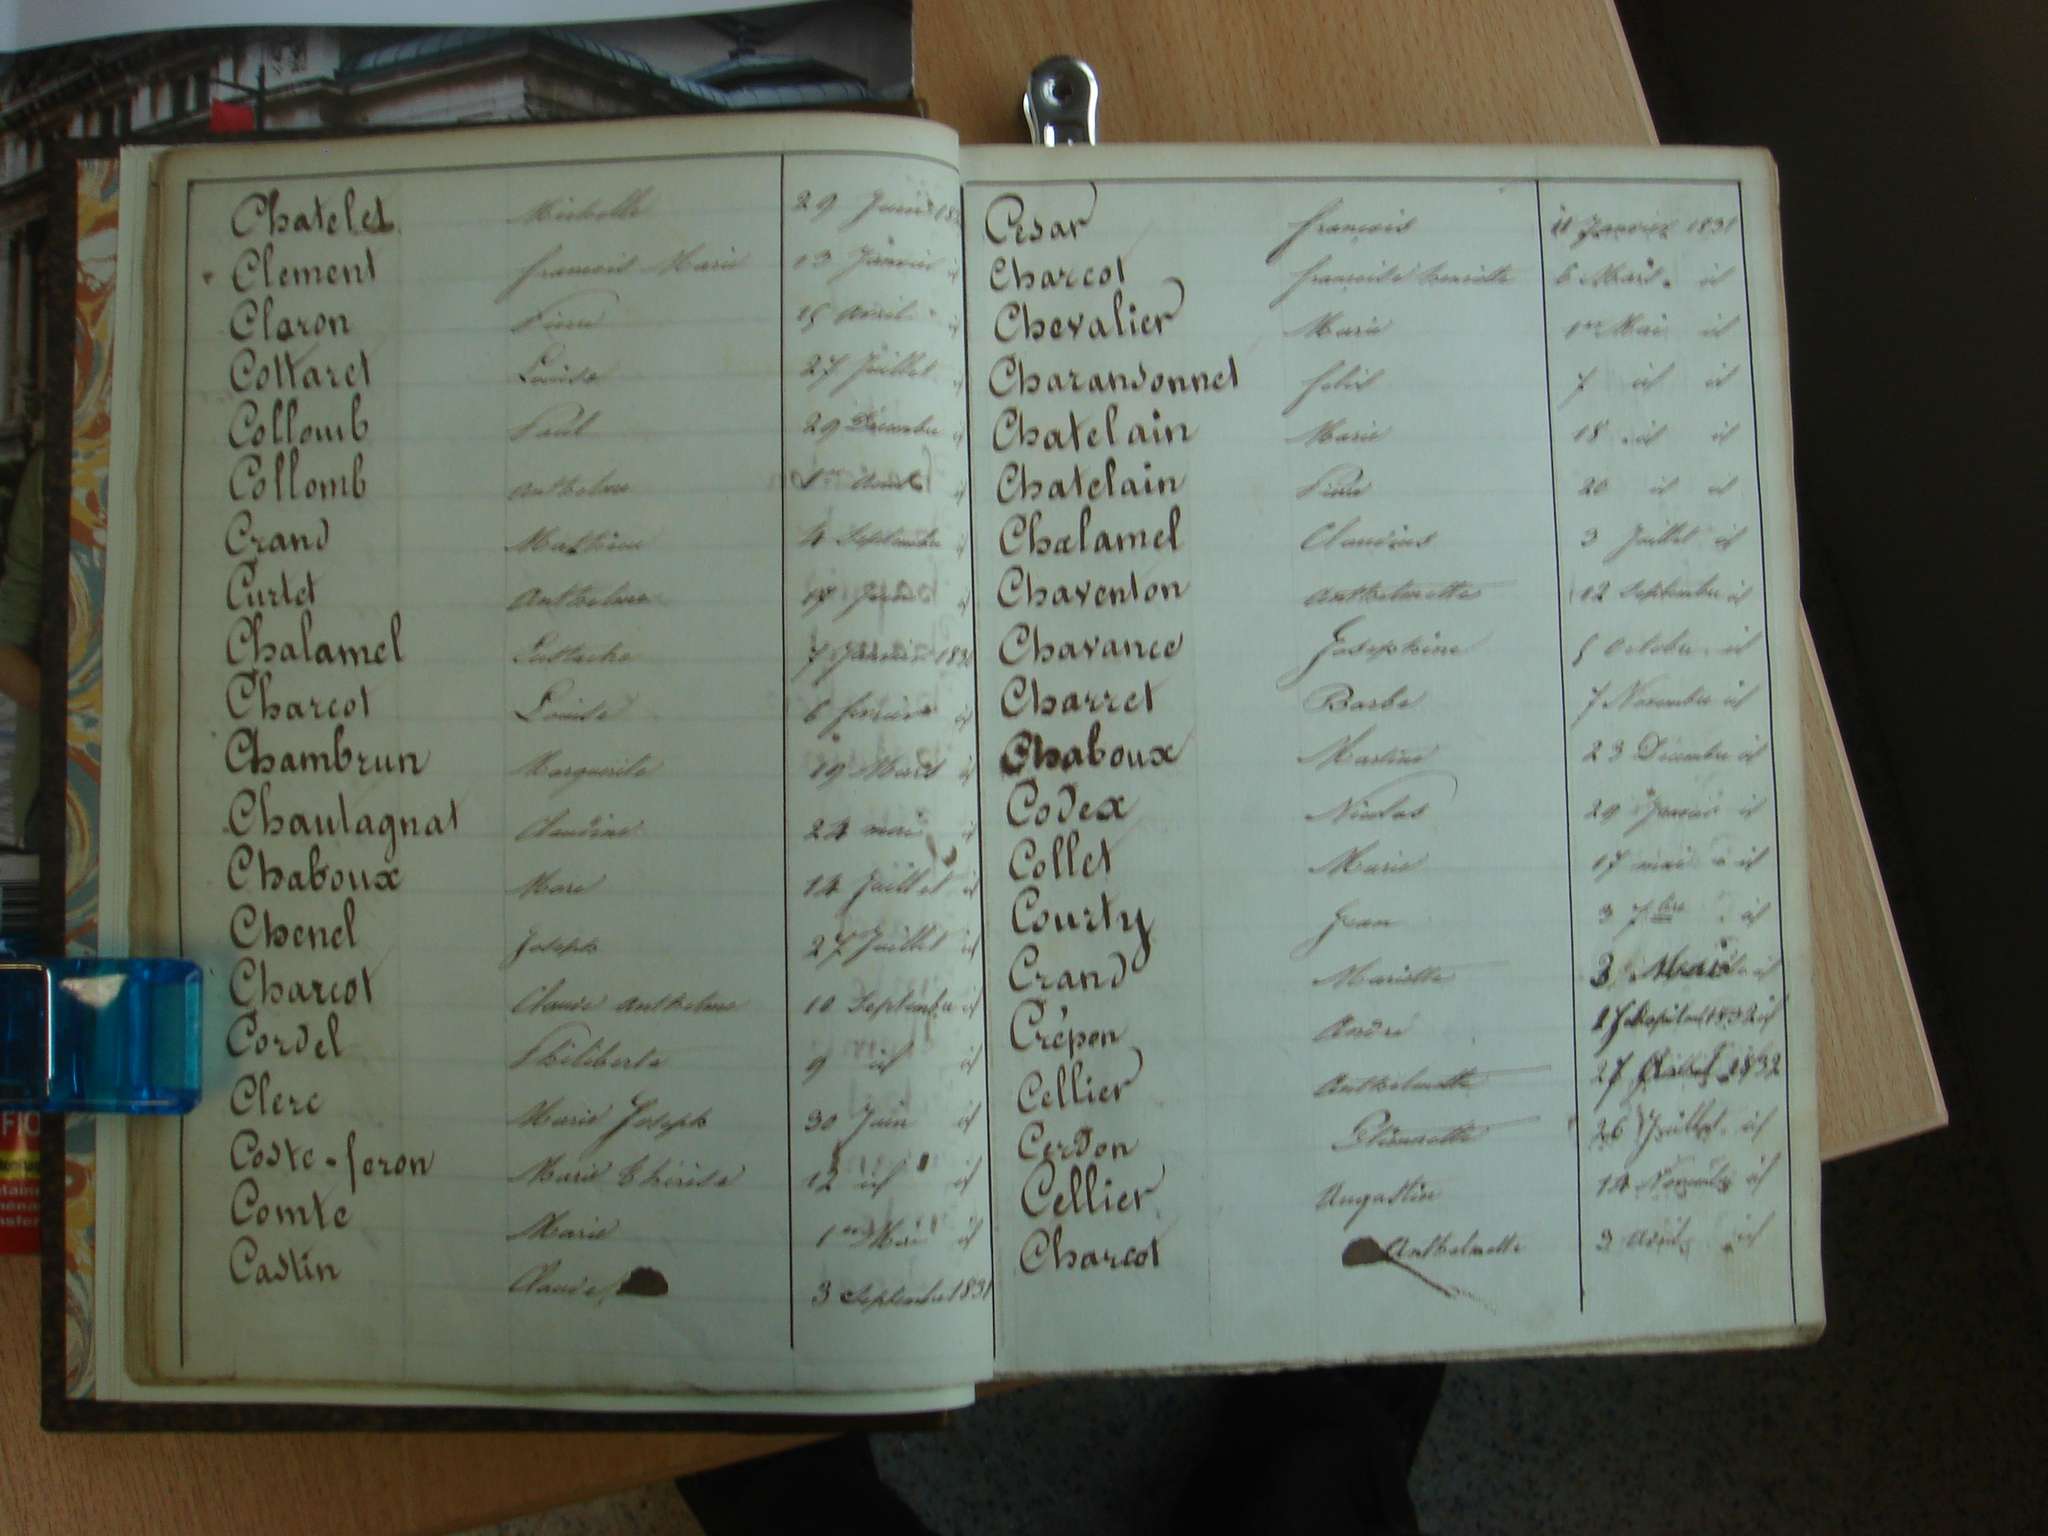 Chatelet Michelle 29 Juin
Clement francois Marie 13 Janvier id
Claron Pierre 15 avril id
Cottaret Louise 27 Juillet
Collomb Paul 29 Décembre id
Collomb Anthelme 1er id
Crand Mathieu 4 Septembre id
Curtet Anthelme 17 Juin id
Chalamel Eustache 7 Janvier 1830
Charcot Louise 6 fevrier id
Chambrun Marguerite 19 Mars id
Chaulagnat Claudine 24 mai id
Chaboux Marc 14 Juillet id
Chenel Joseph 27 Juillet id
Charcot Claude Anthelme 10 Septembre id
Cordel Philiberte 9 id id
Clerc Marie Joseph 30 Juin id
Coste-feron Marie Thérèse 12 id id
Comte Marie 1er Mai id
Castin Claude 3 Septembre 1831
Cesar francois 11 Janvier 1831
Charcot francoise henriette 6 Mars id
Chevalier Marie 1er Mai id
Charandonnet felix 7 id id
Chatelain Marie 18 id id
Chatelain Pierre 20 id id
Chalamel Claudius 3 Juillet id
Chaventon Anthelmette 12 Septembre id
Chavance Josephine 5 Octobre id
Charret Barbe 7 Novembre id
Chaboux Martine 23 Décembre id
Codex Nicolas 29 Janvier id
Collet Marie 17 mai id
Courty Jean 3 7bre id
Crand Mariette 3 id
Crépon André 1832 id
Cellier Anthelmette 27 1832
Cerdon Pierrette 26 Juillet id
Cellier Augustin 14 Novembre id
Charcot Anthelmette 3 Avril id